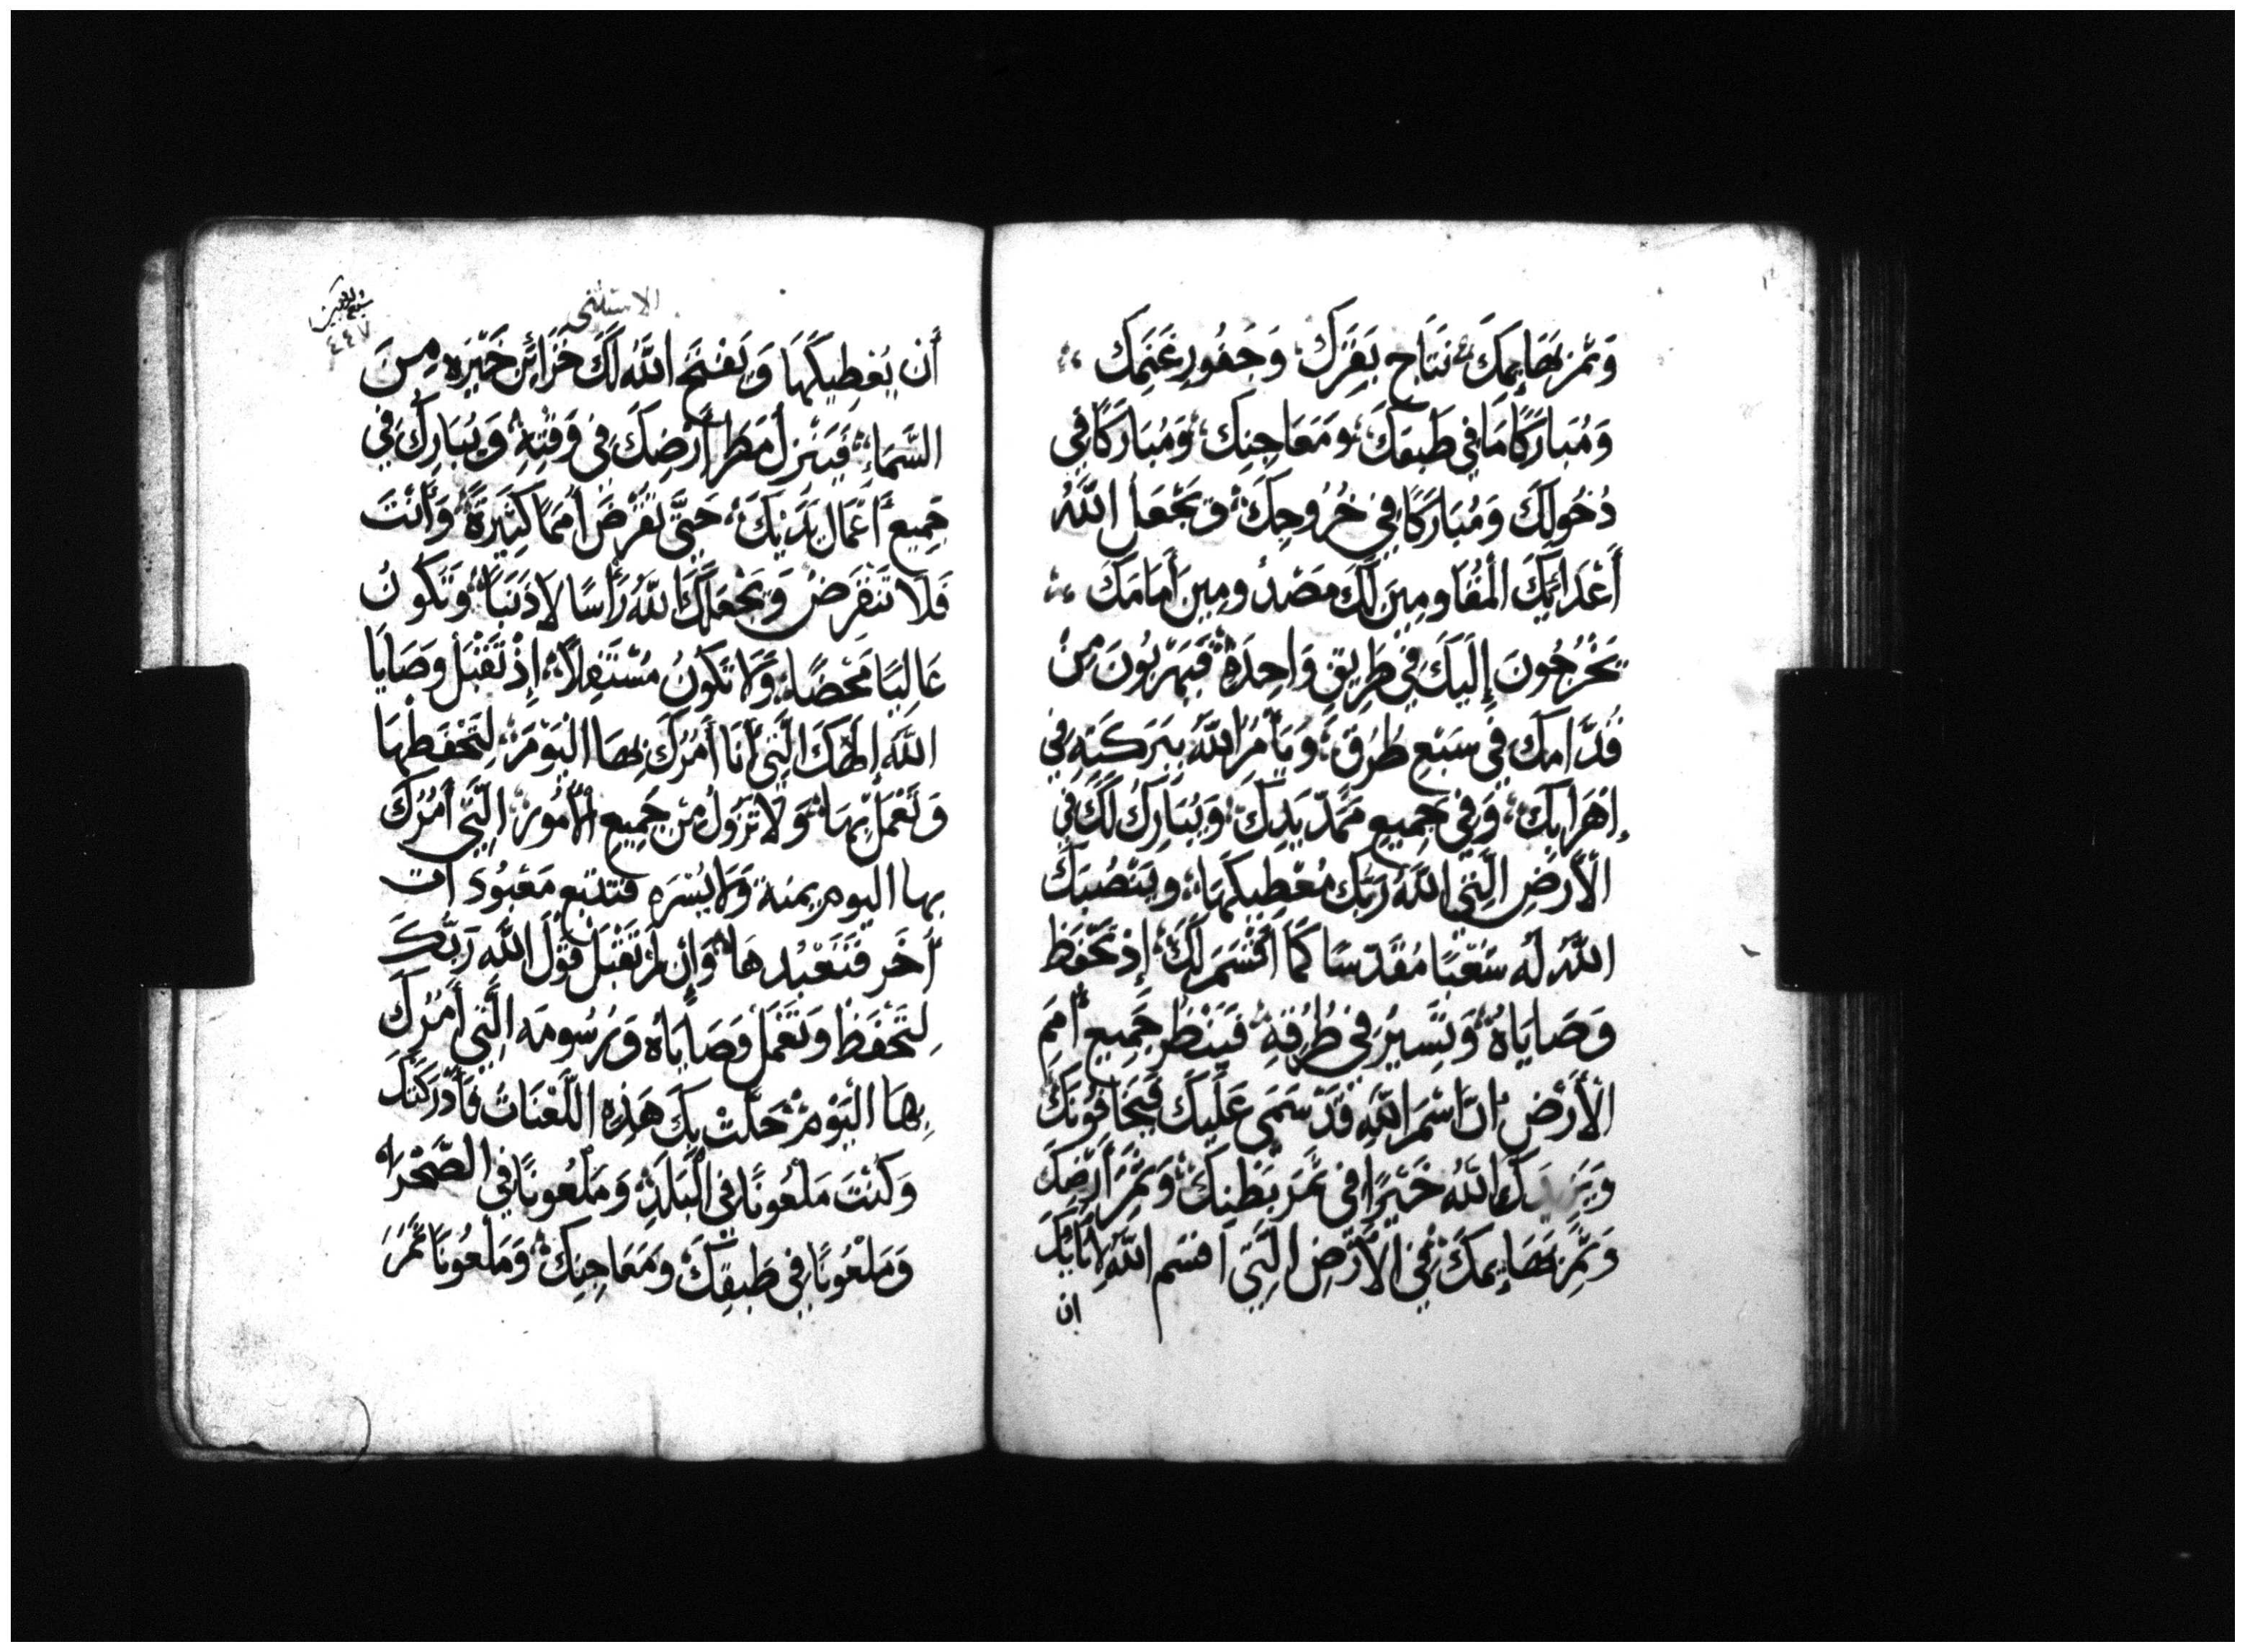 وَثَمَرِ بَهَايِمِكَ، نَتَاجِ بَقَرِكَ، وَجَفُورِ غَنَمِكَ
وَمُبَارَكًا مَا فِي طَبَقِكَ، وَمَعَاجِنِكَ، وَمُبَارَكًا فِي
دُخُولِكَ وَمُبَارَكًا فِي خُرُوجِكَ، وَيَجْعَلُ اللَّهُ
أَعْدَائِكَ الْمُقَاوِمِينَ لَكَ مَصْدُومِينَ أَمَامَكَ
يَخْرُجُونَ إِلَيكَ فِي طَرِيقٍ وَاحِدَهْ، فَيَهْرَبُونَ مِنْ
قُدَّامِكَ فِي سَبْعِ طُرُقٍ، وَيَأْمُرُ اللَّهُ بِبَرَكَتِهِ فِي
إهْرَايِكَ، وَفِي جَمِيعِ مَمَدِّ يَدِكَ، وَيُبَارِكُ لَكَ فِي
الْأَرْضِ الَّتِي اللَّهُ رَبُّكَ مُعْطِيكَهَا، وَيَنْصُبَكَ
اللَّهُ لَه شَعْبًا مُقَدَّسًا كَمَا أَقْسَمَ لَكَ، إِذْ تَحْفَظ
وَصَايَاهُ، وَتَسِيرُ فِي طُرُقِهِ، فَيَنْظُر جَمِيع أُمَمِ
الْأَرْضِ انَّ اسْمَ اللَّهِ قَدْ سَمَى عَلَيكَ فَيَخَافُونَكَ
وَيَزِيدَكَ اللَّهُ خَيْرًا فِي ثَمَرِ بَطْنِكَ، وَثَمَرِ أَرْضِكَ
وَثَمَرِ بَهَايِمِكَ، فِي الْأَرْضِ الَّتِي اقسَم اللَّهُ لِآبَائِكَ
ان
الاستثنى
٤٤٧
أَنْ يُعْطِيكَهَا وَيَفْتَح اللَّهُ لَكَ خَزَائِنَ خَيْرِهِ مِنَ
السَّمَاءِ، فَيَنْزِل مَطَر أَرْضِكَ فِي وَقْتِهِ، وَيُبَارِكَ فِي
جَمِيعِ أَعْمَالِ يَدَيْكَ، حَتَّى تَقْرِضَ أُمَمًا كَثِيرَةً، وَأَنْتَ
فَلَا تَنْقَرِضُ وَيَجْعَلَكَ اللَّهُ رَأْسًا لَا ذَنَبًا، وَتَكُونُ
عَالِيًا مَحْضًا، وَلَا تَكُونُ مُسْتَفِلًا، إِذْ تَقْبَل وَصَايَا
اللَّهِ إِلَهِكَ الَّتِي أَنَا أَمُرُكَ بِهَا الْيَوْمَ، لِتَحْفَظْهَا
وَتَعْمَلْ بِهَا، وَلَا تَزُولُ مِنْ جَمِيعِ الْأُمُورِ، الَّتِي أَمُرُكَ
بها اليوم يمنة وَلَا يُسْرَه فتتبع مَعْبُودَات
أُخَر فَتَعْبُدهَا، وَإِنْ لَمْ تَقْبَل قَوْلَ اللَّهِ رَبِّكَ
لِتَحْفَظ وَتَعْمَل وَصَايَاهُ وَرُسُومَه الَّتِي أَمُرُكَ
بِهَا الْيَوْمَ، حَلَّتْ بِكَ هَذِهِ اللَّعْنَاتُ فَأَدْرَكَتْكَ
وَكُنْتَ مَلْعُونًا فِي الْبَلَدِ، وَمَلْعُونًا فِي الصَّحْرَاء
وَمَلْعُونًا فِي طَبَقِكَ وَمَعَاجِنِكَ، وَمَلْعُونًا ثَمَرَ